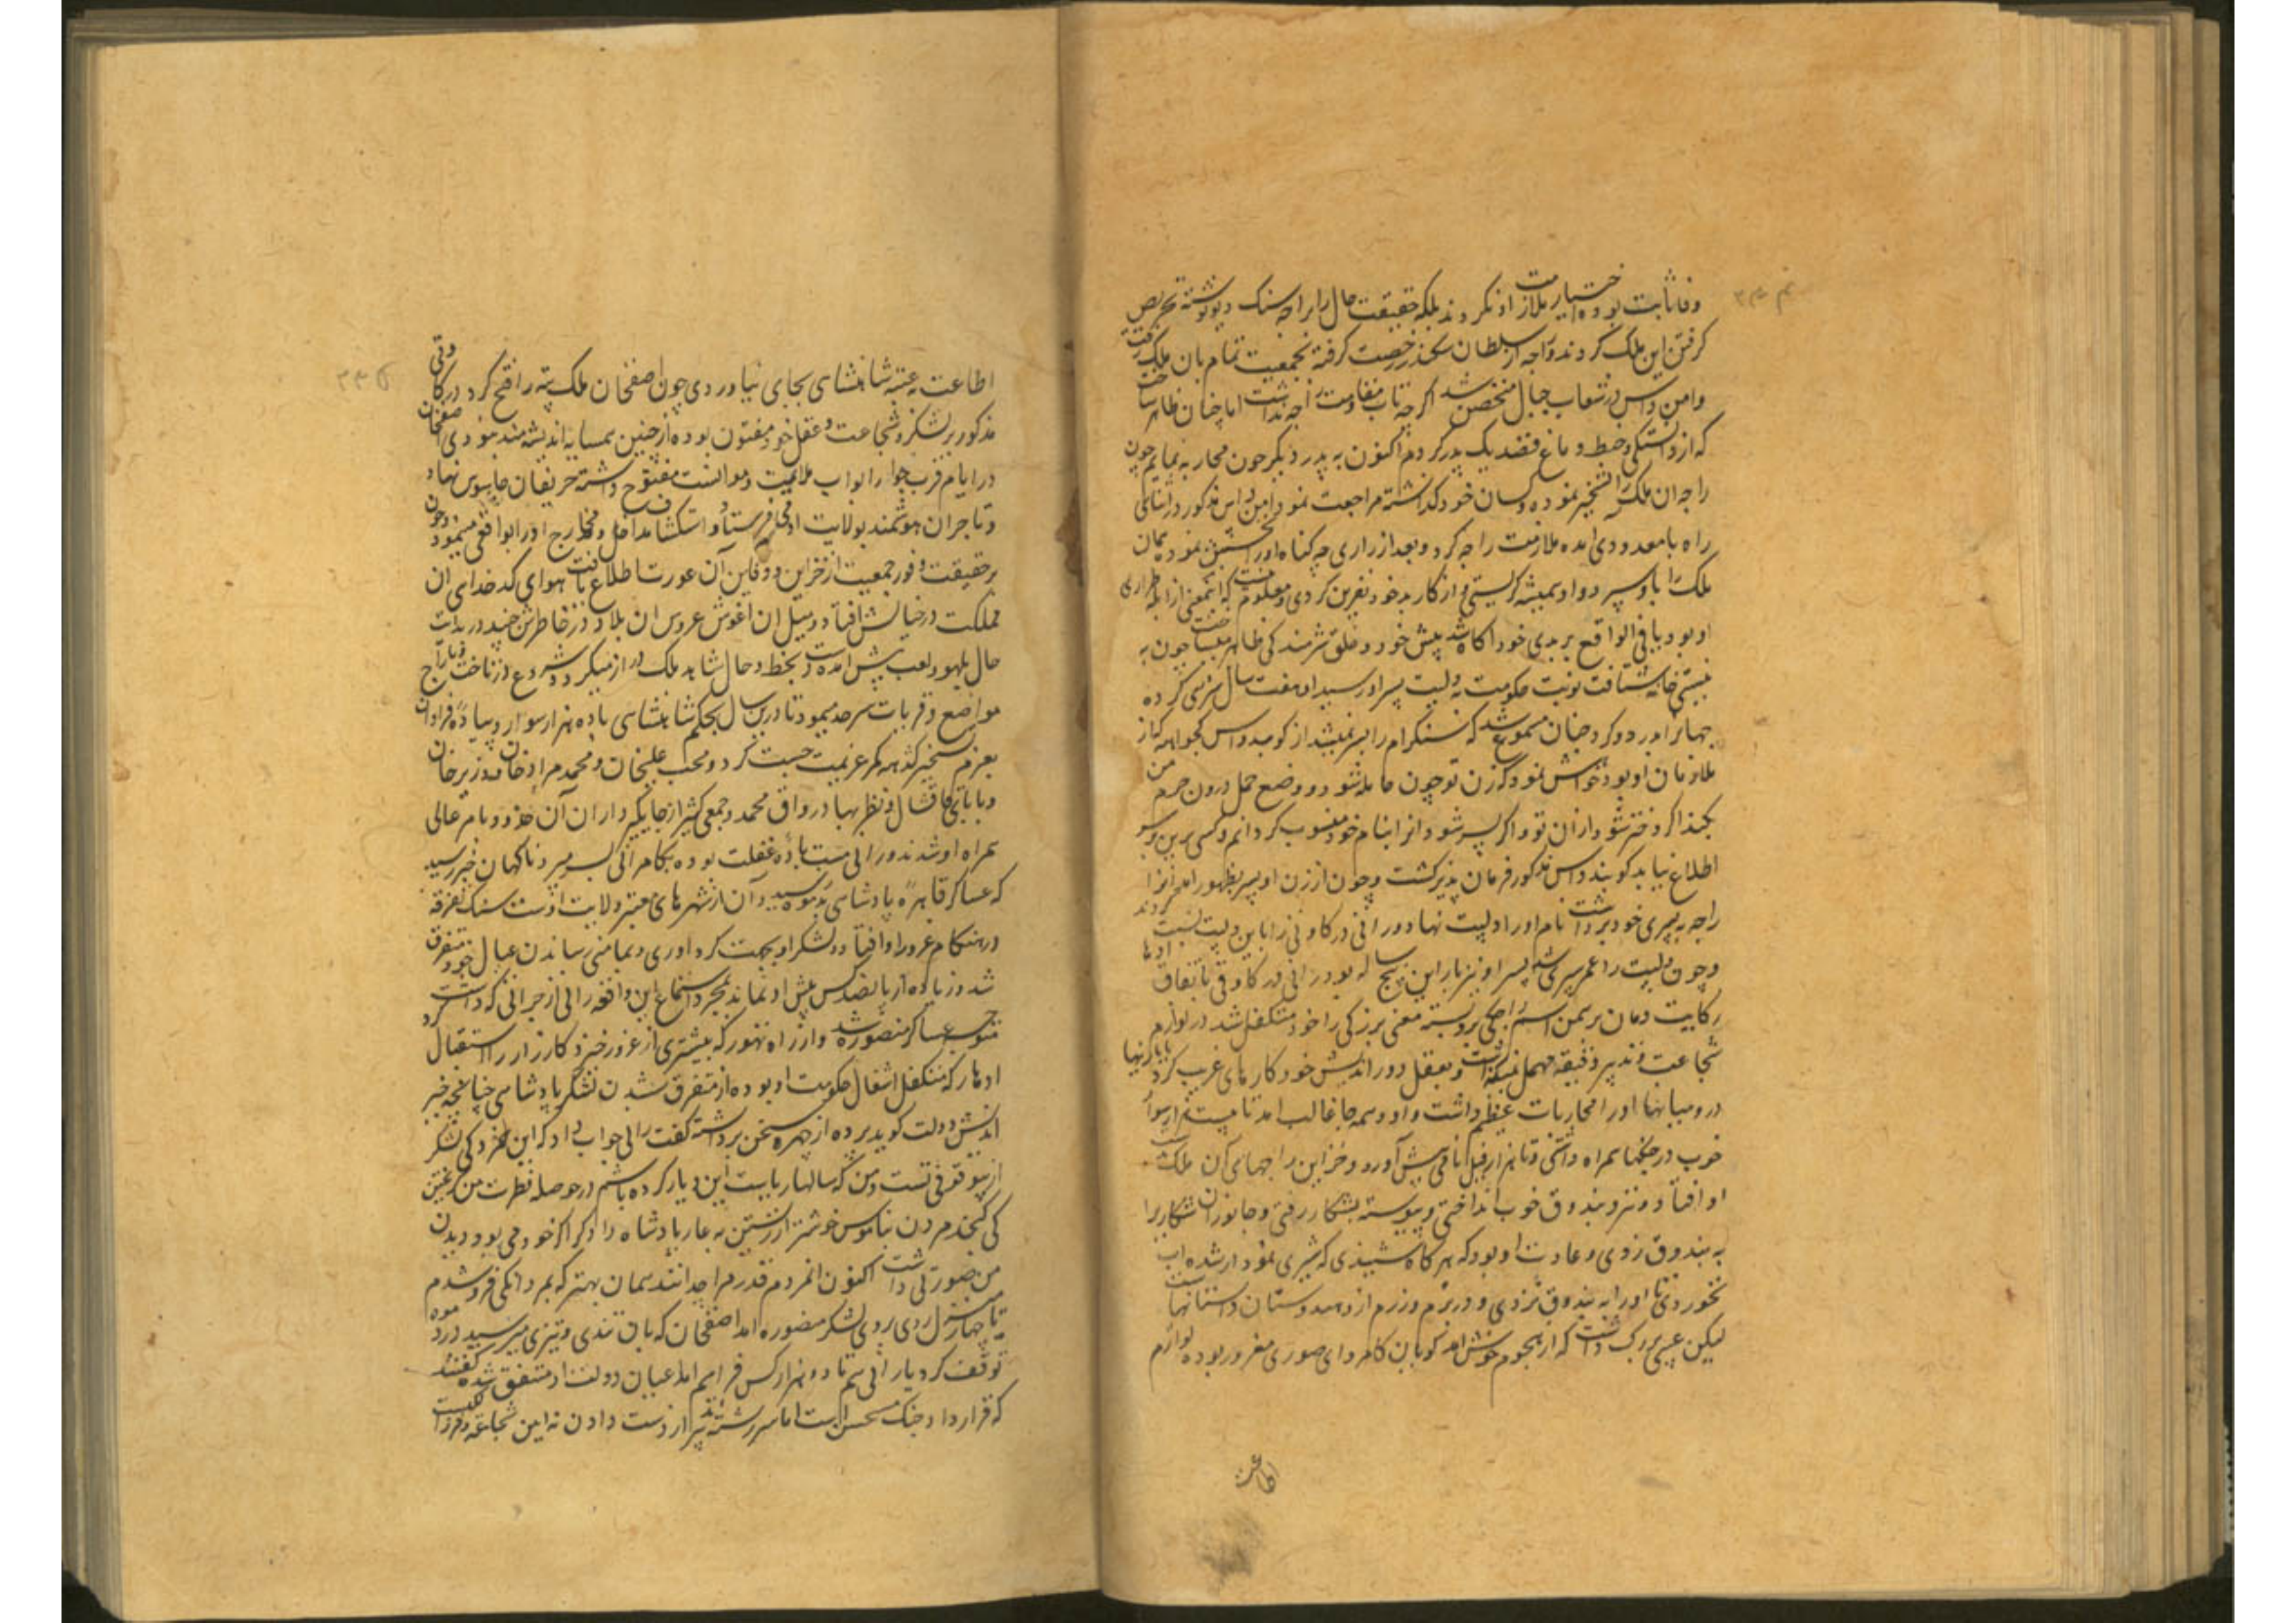 وفا ثابت بوده اختیار ملازمت او نکردند بلکه حقیقت حال را براجه سنک دیو نوشته تحریص
گرفتن این ملک کردند و راجه از سلطان سکندر رخصت گرفته بجمعیت تمام بان ملک رفته
وامن داس در شعاب جبال متحصن شد اگرچه تاب مقاومت راجه نداشت اما چنان ظاهر ساخت
که از دلتنگی و خبط دماغ قصد یک پدر کردم اکنون به پدر دیگر چون محاربه نمایم چون
راجه ان ملک را تسخیر نموده و کسان خود گذاشته مراجعت نمود امن داس مذکور در اثنای
راه با معدودی امده ملازمت راجه کرد و بعد از زاری چه گناه او را بخشش نمود همان
ملک را باو سپرد و او همیشه گریستی و از کار بد خود نفرین کردی و معلوم نیست که این معنی از
او بود یا فی الواقع بر بدی خود اگاه شده پیش خود و خلق شرمندگی ظاهر میساخت چون به
نیستی خانه شتافت نوبت حکومت به دلپت پسر او رسید او هفت سال بزرگی کرده
جهانرا پدرود کرد چنان مسموع شد که سنکرام را پسر نمیشد از گوبند داس کچواهه که از
ملازمان او بود خواهش نمود که زن تو چون حامله شود و وضع حمل درون حرم من
بکند اگر دختر شود از ان تو و اگر پسر شود انرا بنام خود منسوب گردانم و کسی برین سر
اطلاع نیابد گوبند داس مذکور فرمان پذیر گشت و چون از زن او پسر بظهور امد انرا
راجه به پسری خود برداشت نام او را دلپت نهاد و رانی درگاوتی را باین دلپت نسبت کردند
و چون دلپت را عمر سپری شد پسر او بیر نراین پنج ساله بود رانی درگاوتی باتفاق ادهار
کایت و مان برهمن اسم راجگی برو بسته معنی بزرگی را خود متکفل شد در لوازم
شجاعت و تدبیر دقیقه مهمل نمیگذاشت و بعقل دوراندیش خود کارهای غریب کرد با باز بهادر
و میانها او را محاربات عظیم داشت و او همه جا غالب امد تا بیست هزار سوار
خوب در جنکها همراه داشتی و تا هزار فیل نامی پیش آورد و خزاین راجهای آن ملک بدست
او افتاد و تیر و بندوق خوب انداختی و پیوسته بشکار رفتی و جانوران شکاری را
به بندوق زدی و عادت او بود که هرگاه شنیدی که شیری نمودار شده اب
نخوردی تا او را به بندوق نزدی و در بزم و رزم از و هندوستان داستانهاست
لیکن عیبی بزرگ داشت که از هجوم خوش امد گویان کامروای صوری مغرور بوده لوازم
اطاعت
اطاعت به عتبه شاهنشاهی بجای نیاوردی چون اصفخان ملک پته را فتح کرد درگاوتی
مذکور بر لشکر و شجاعت و عقل خود مفتون بوده از چنین همسایه اندیشه مند نبودی اصفخان
در ایام قرب جوار ابواب ملایمت و موانست مفتوح داشته حریفان جاسوس نهاد
و تاجران هوشمند بولایت او می فرستاد و استکشاف مداخل و مخارج او را بواقعی مینمود و چون
بر حقیقت وفور جمعیت از خزاین و دفاین آن عورت اطلاع یافت هوای کدخدای ان
مملکت در خیالش افتاد و میل ان اغوش عروس ان بلاد در خاطرش خلید در بدایت
حال بلهو و لعب پیش امده دست بخط و خال شاهد ملک دراز میکرد و شروع در تاخت و تاراج
مواضع و قریات سرحد مینمود تا درین سال بحکم شاهنشاهی با ده هزار سوار و پیادهٔ فراوان
بعزم تسخیر کدهه کمر عزیمت چست کرد و محب علیخان و محمد مراد خان و وزیر خان
و بابای قاقشال و نظر بهادر و اق محمد و جمعی کثیر از جایگیرداران آن حدود بامر عالی
همراه او شدند و رانی مست بادهٔ غفلت بوده بکامرانی بسر میبرد ناکهان خبر رسید
که عساکر قاهرهٔ پادشاهی بدموه رسید و آن از شهرهای معتبر ولایت اوست سنک تفرقه
در هنکام غرور او افتاد و لشکر او بجهت گرداوری و بمامنی رساندن عیال خود متفرق
شد و زیاده از پانصد کس پیش او نماند بمجرد استماع این واقعه رانی از جراتی که داشت
متوجه عساکر منصوره شد و از راه تهور که بیشتری از غرور خیزد کارزار را استقبال کرد
ادهار که متکفل اشغال حکومت او بوده از متفرق شدن لشکر پادشاهی چنانچه خیر
اندیش دولت گوید پرده از چهره سخن برداشته گفت رانی جواب داد که این خردکی لشکر
از بیوقوفی تست و من که سالها ریاست این دیار کرده باشم در حوصله فطرت من گریختن
کی کنجد مردن بناموس خوشتر از زیستن به عار پادشاه دادگر اگر خود می بود دیدن
من صورتی داشت اکنون انمردم قدر مرا چه دانند همان بهتر که بمردانکی فروشدم
تا چهار منزل روی بروی لشکر منصوره امد اصفخان که باین تندی و تیزی میرسید در دموه
توقف کرد یارانی هم تا دو هزار کس فراهم امد اعیان دولت او متفق شده گفتند
که قرارداد جنک مستحسن است اما سررشته تدبیر از دست دادن نه ایین شجاعت و فرزانگیست